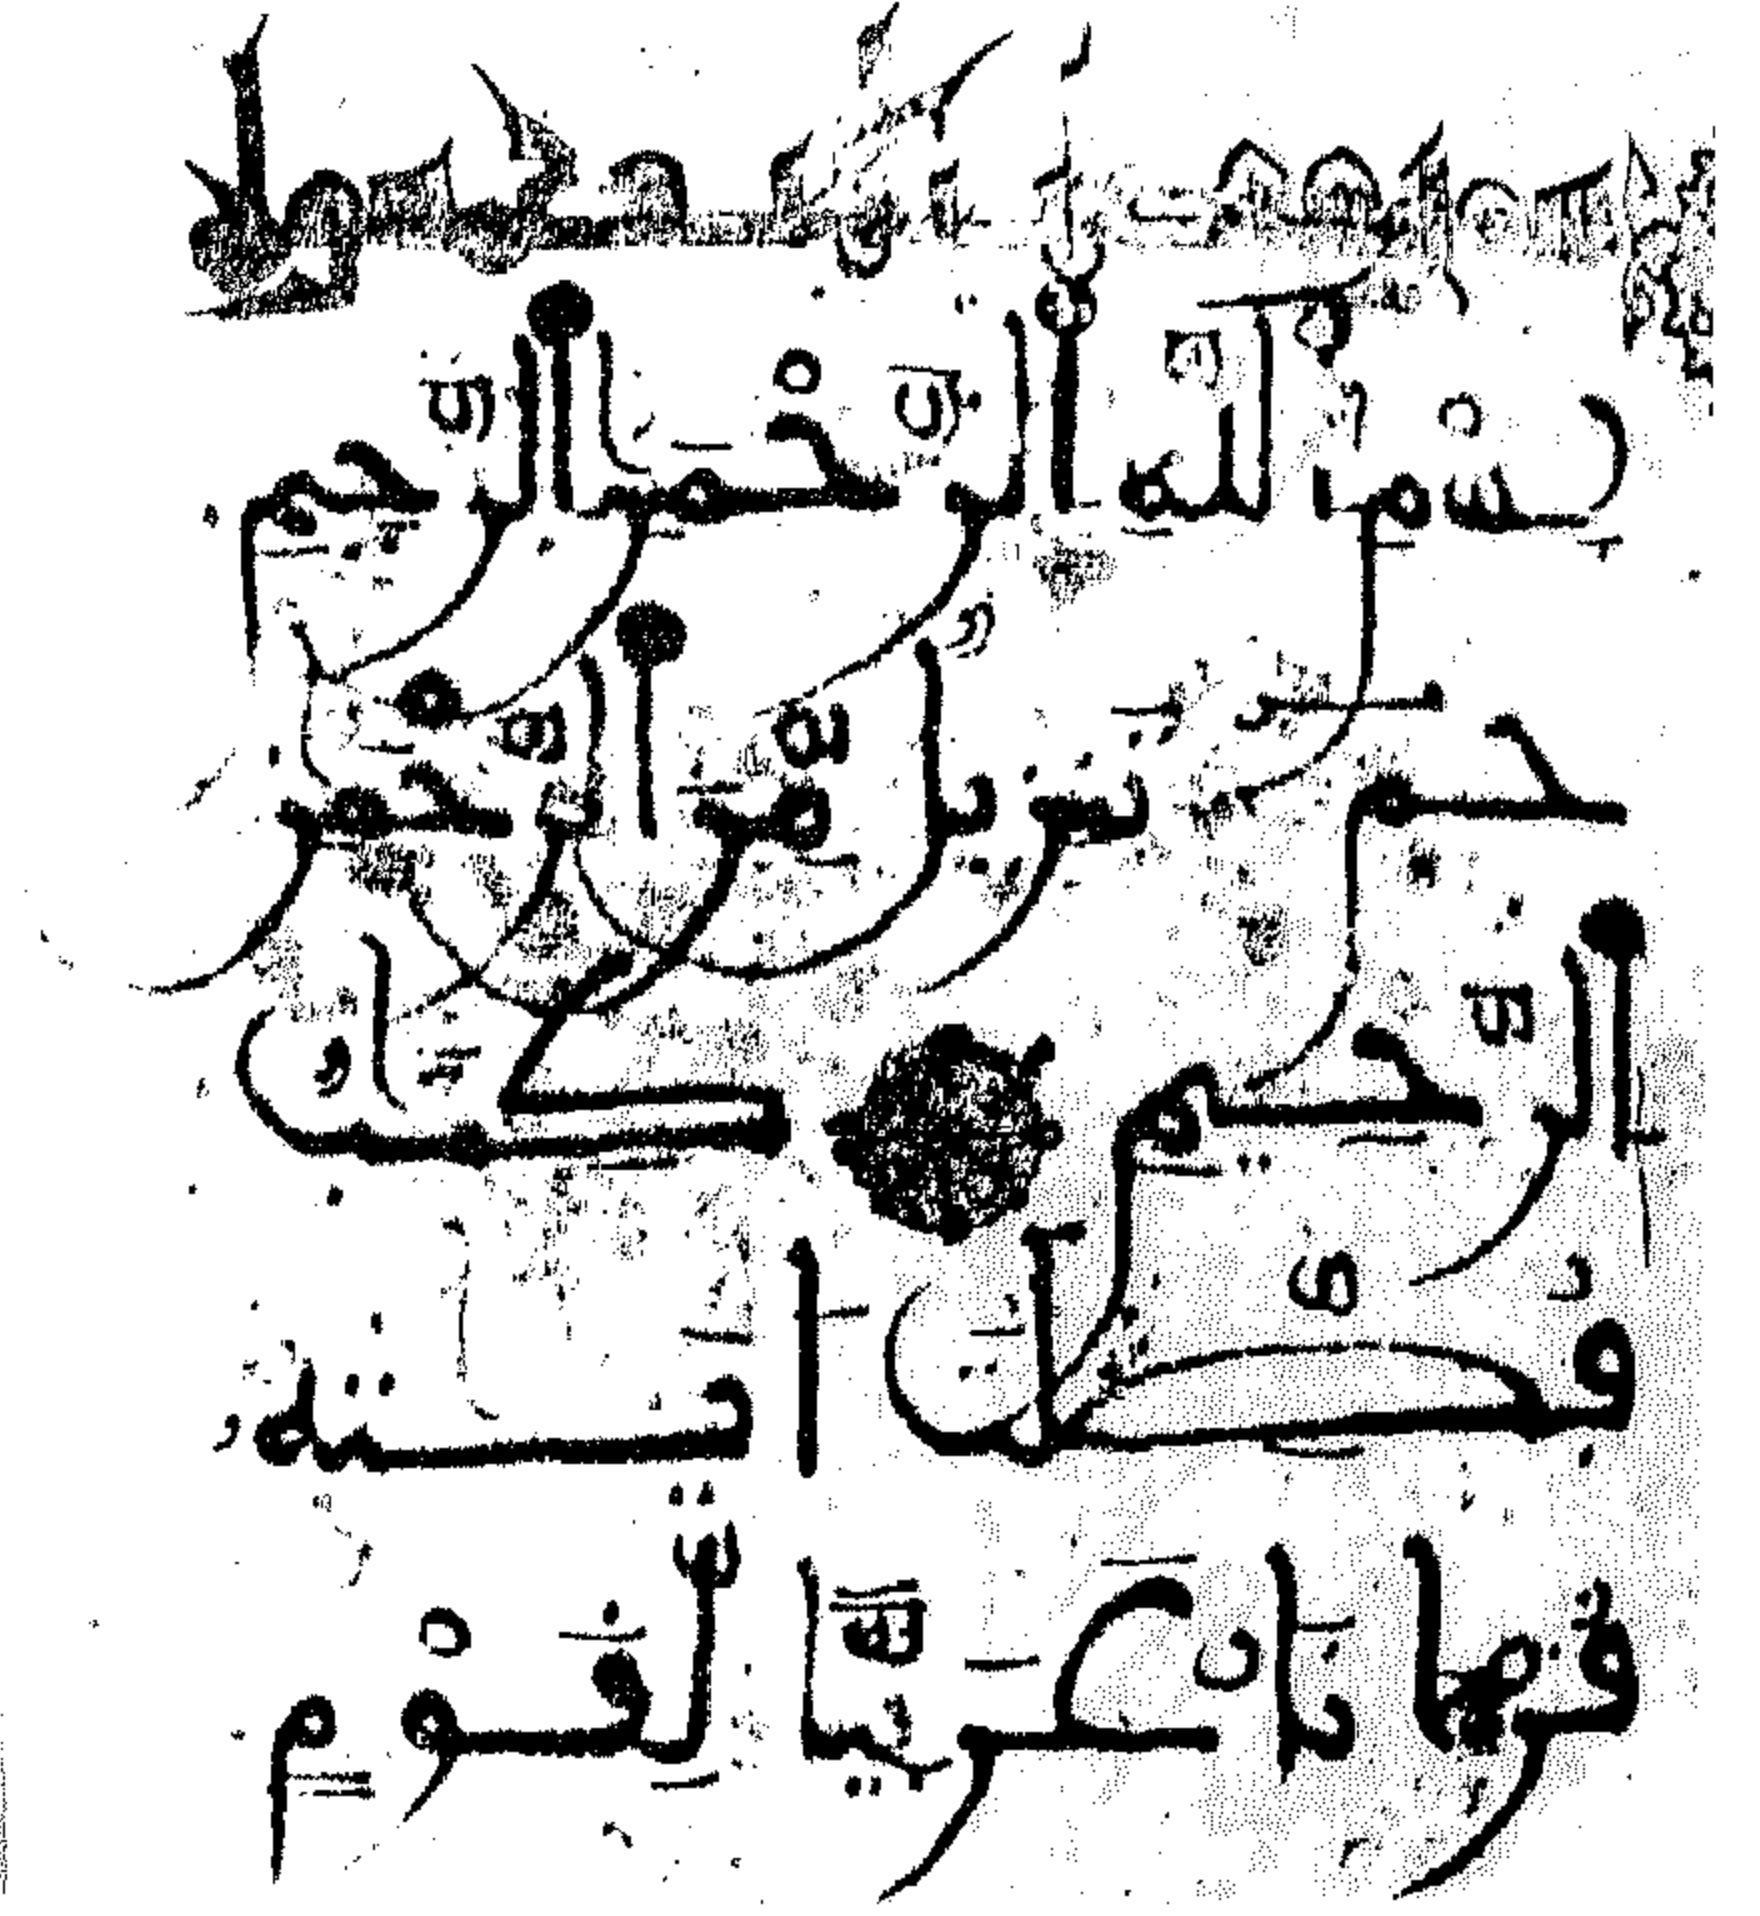 بسم الله الرحمن الرحيم
حم تنزيل من الرحمن
الرحيم كتٰب
فصلت ايٰته
قرءانا عربيا لقوم